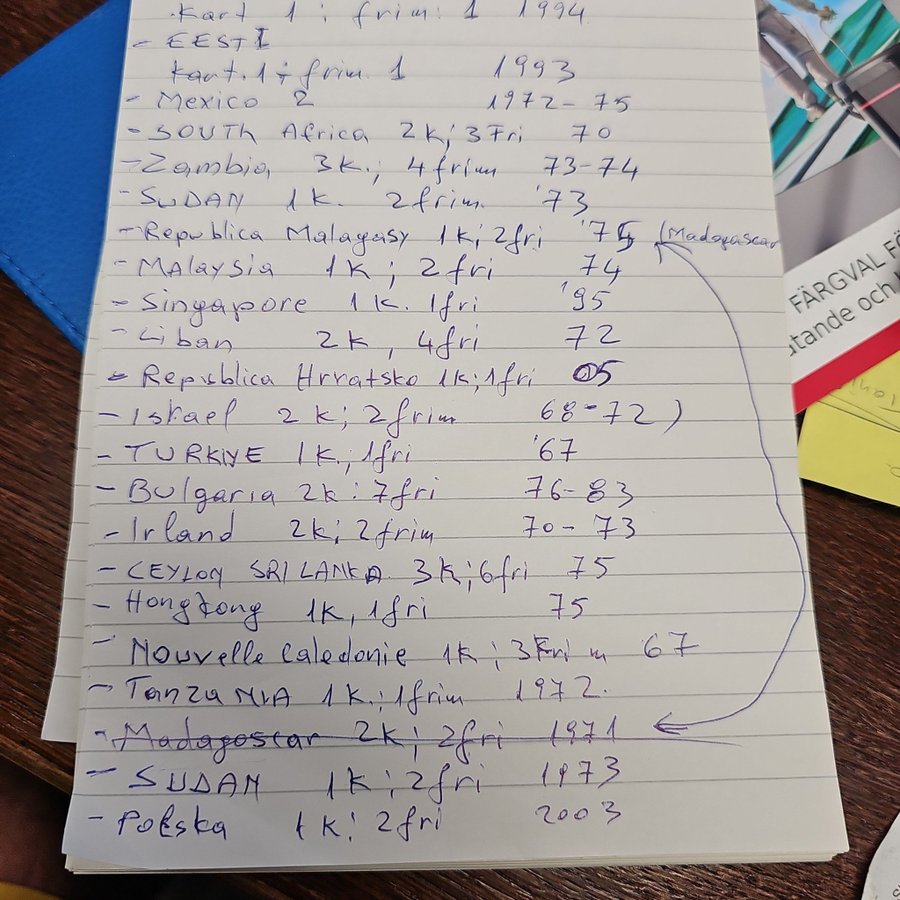 kart 1 ; frim. 1 1994
- EESTI
kart. 1 ; frim. 1 1993
- Mexico 2 1972-75
- SOUTH Africa 2k; 3Fri 70
- Zambia 3k.; 4frim 73-74
- SUDAN 1k. 2frim. '73
- Republica Malagasy 1k; 2fri '75 (Madagascar
- MAlaysia 1k ; 2fri 74
- Singapore 1k. 1fri '95
- Liban 2k, 4fri 72
- Republica Hrratsko 1k; 1fri 05
- Israel 2k; 2frim 68-72)
- TURKIYE 1k; 1fri '67
- Bulgaria 2k; 7fri 76-83
- Irland 2k; 2frim 70-73
- CEYLON SRI LANKA 3k; 6fri 75
- Hongkong 1k, 1fri 75
- Nouvelle Caledonie 1k; 3Frim 67
- TanzaNIA 1k; 1frim 1972.
- Madagoscar 2k; 2fri 1971
- SUDAN 1k; 2fri 1973
- Polska 1k; 2fri 2003
FÄRGVAL